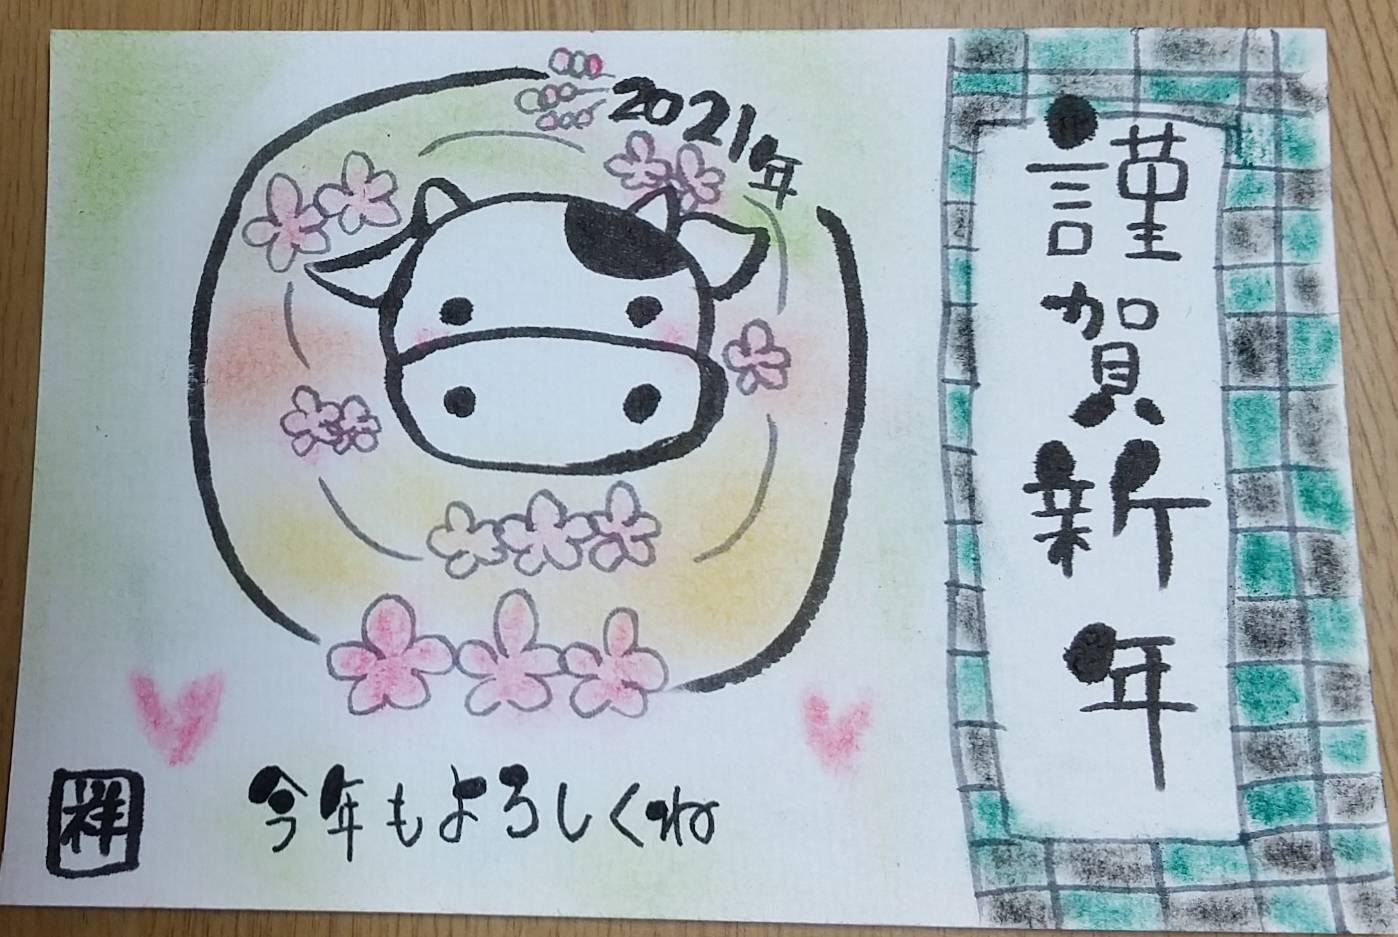 謹賀新年
2021年
今年もよろしくね
祥